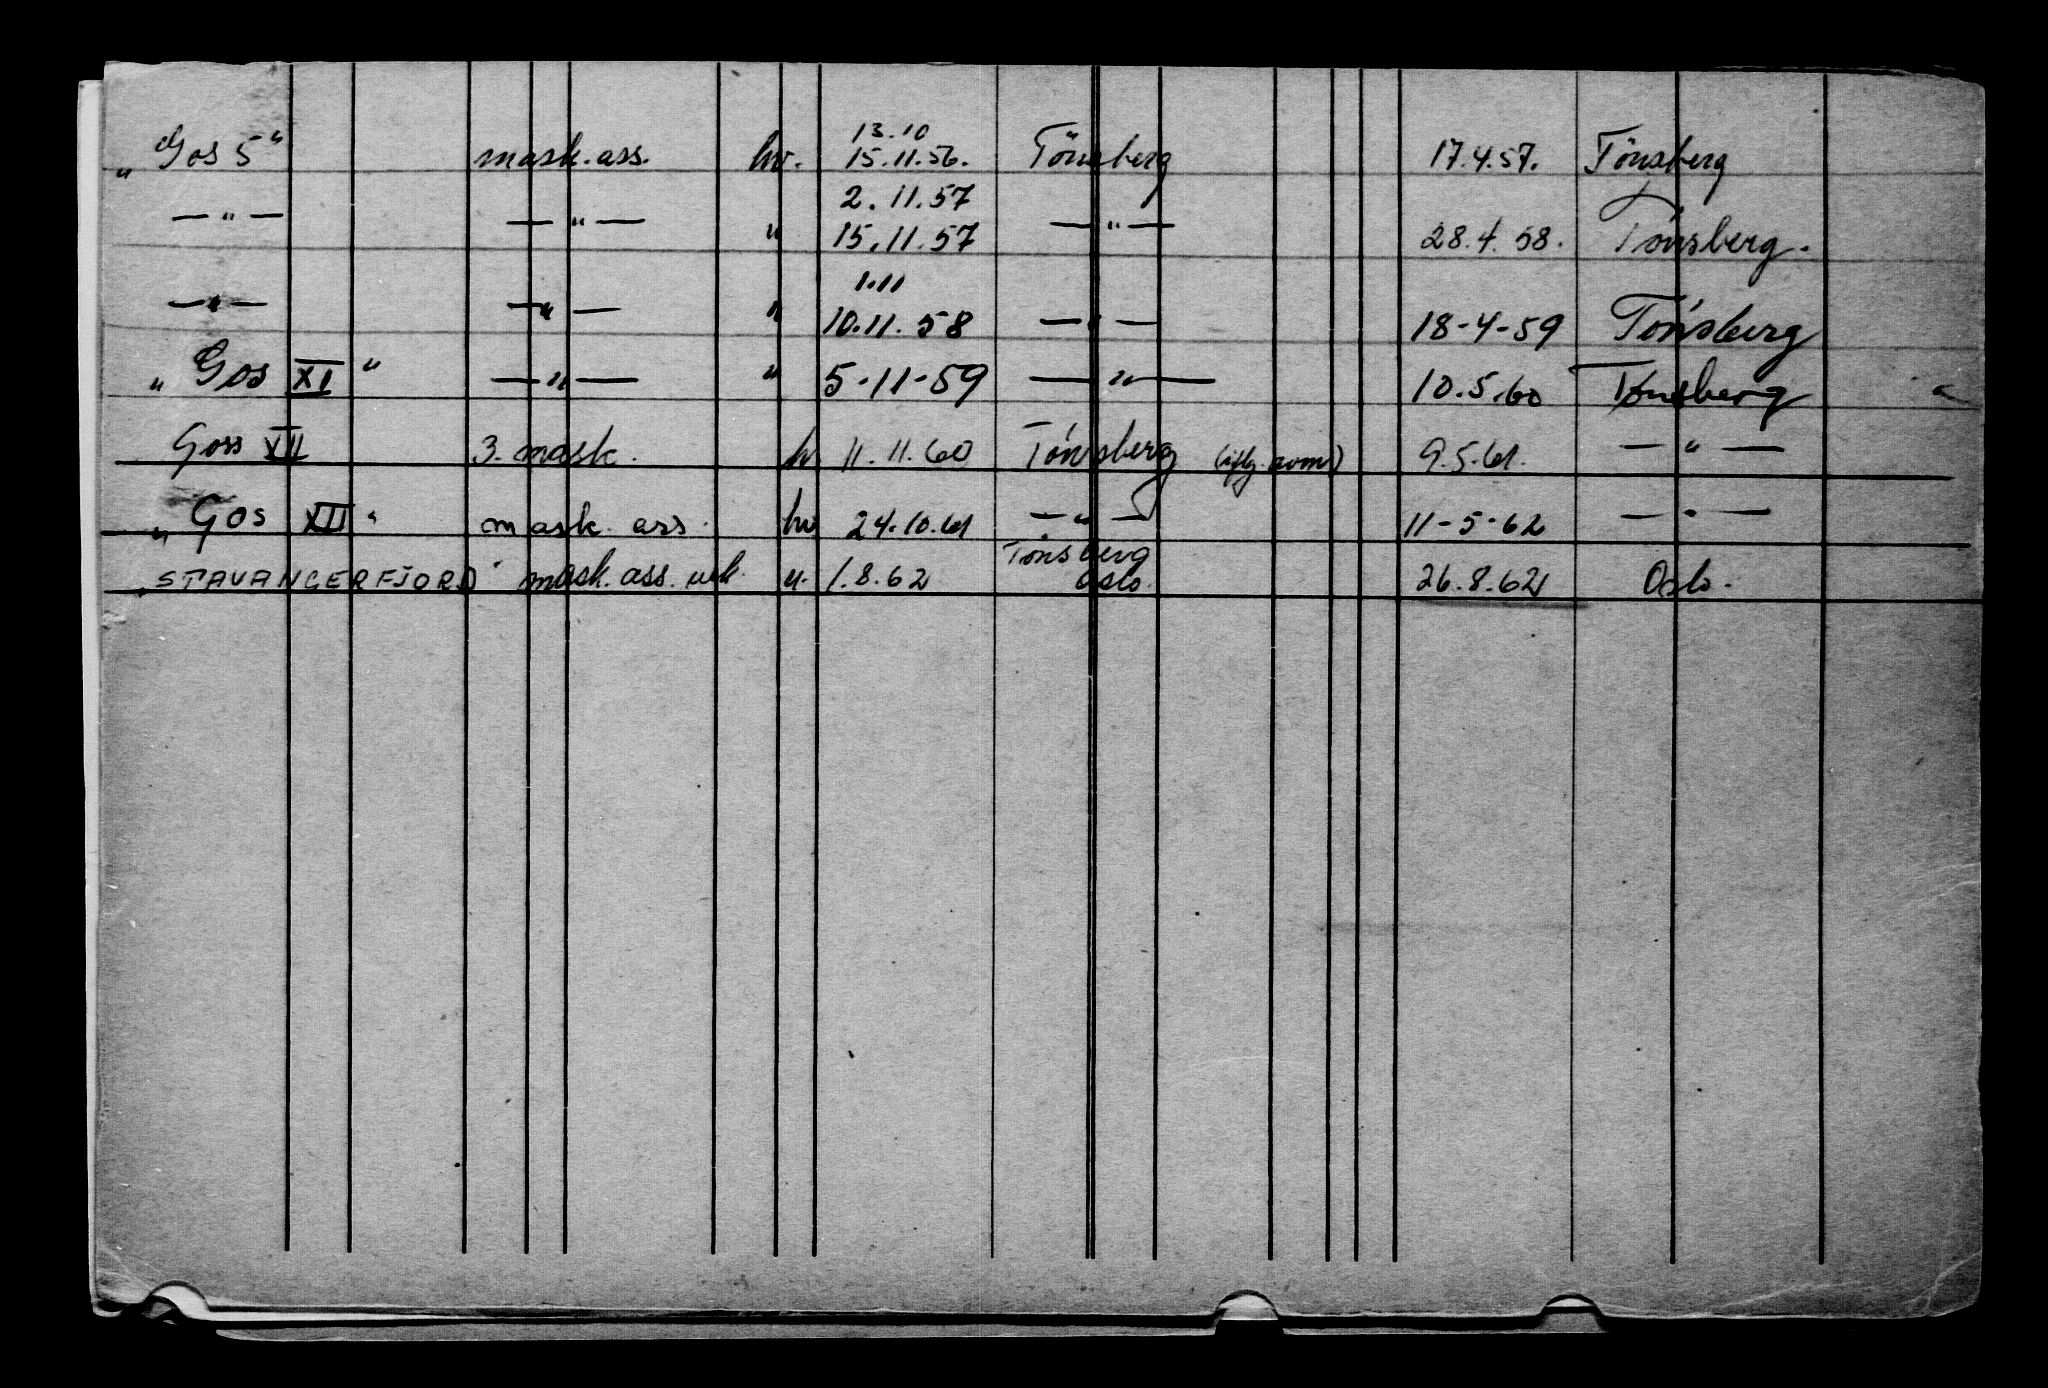 13.10
„Gos 5" mask. ass. hv. 15.11.56. Tönsberg 17.4.57. Tönsberg
2.11.57
— " — — " — " 15.11.57 — " — 28.4.58. Tönsberg.
1.11
— " — — " — " 10.11.58 — " — 18-4-59 Tönsberg
„Gos XI" — " — " 5-11-59 — " — 10.5.60 Tønsberg "
Goss XII 3. mask. h 11.11.60 Tónsberg 9.5.61. — " —
„Gos XII" mask. ass. hv 24.10.61 — " — 11-5-62 — " —
Tönsberg
„STAVANGERFJORD" mask. ass. u. 1.8.62 Oslo. 26.8.62 Oslo.